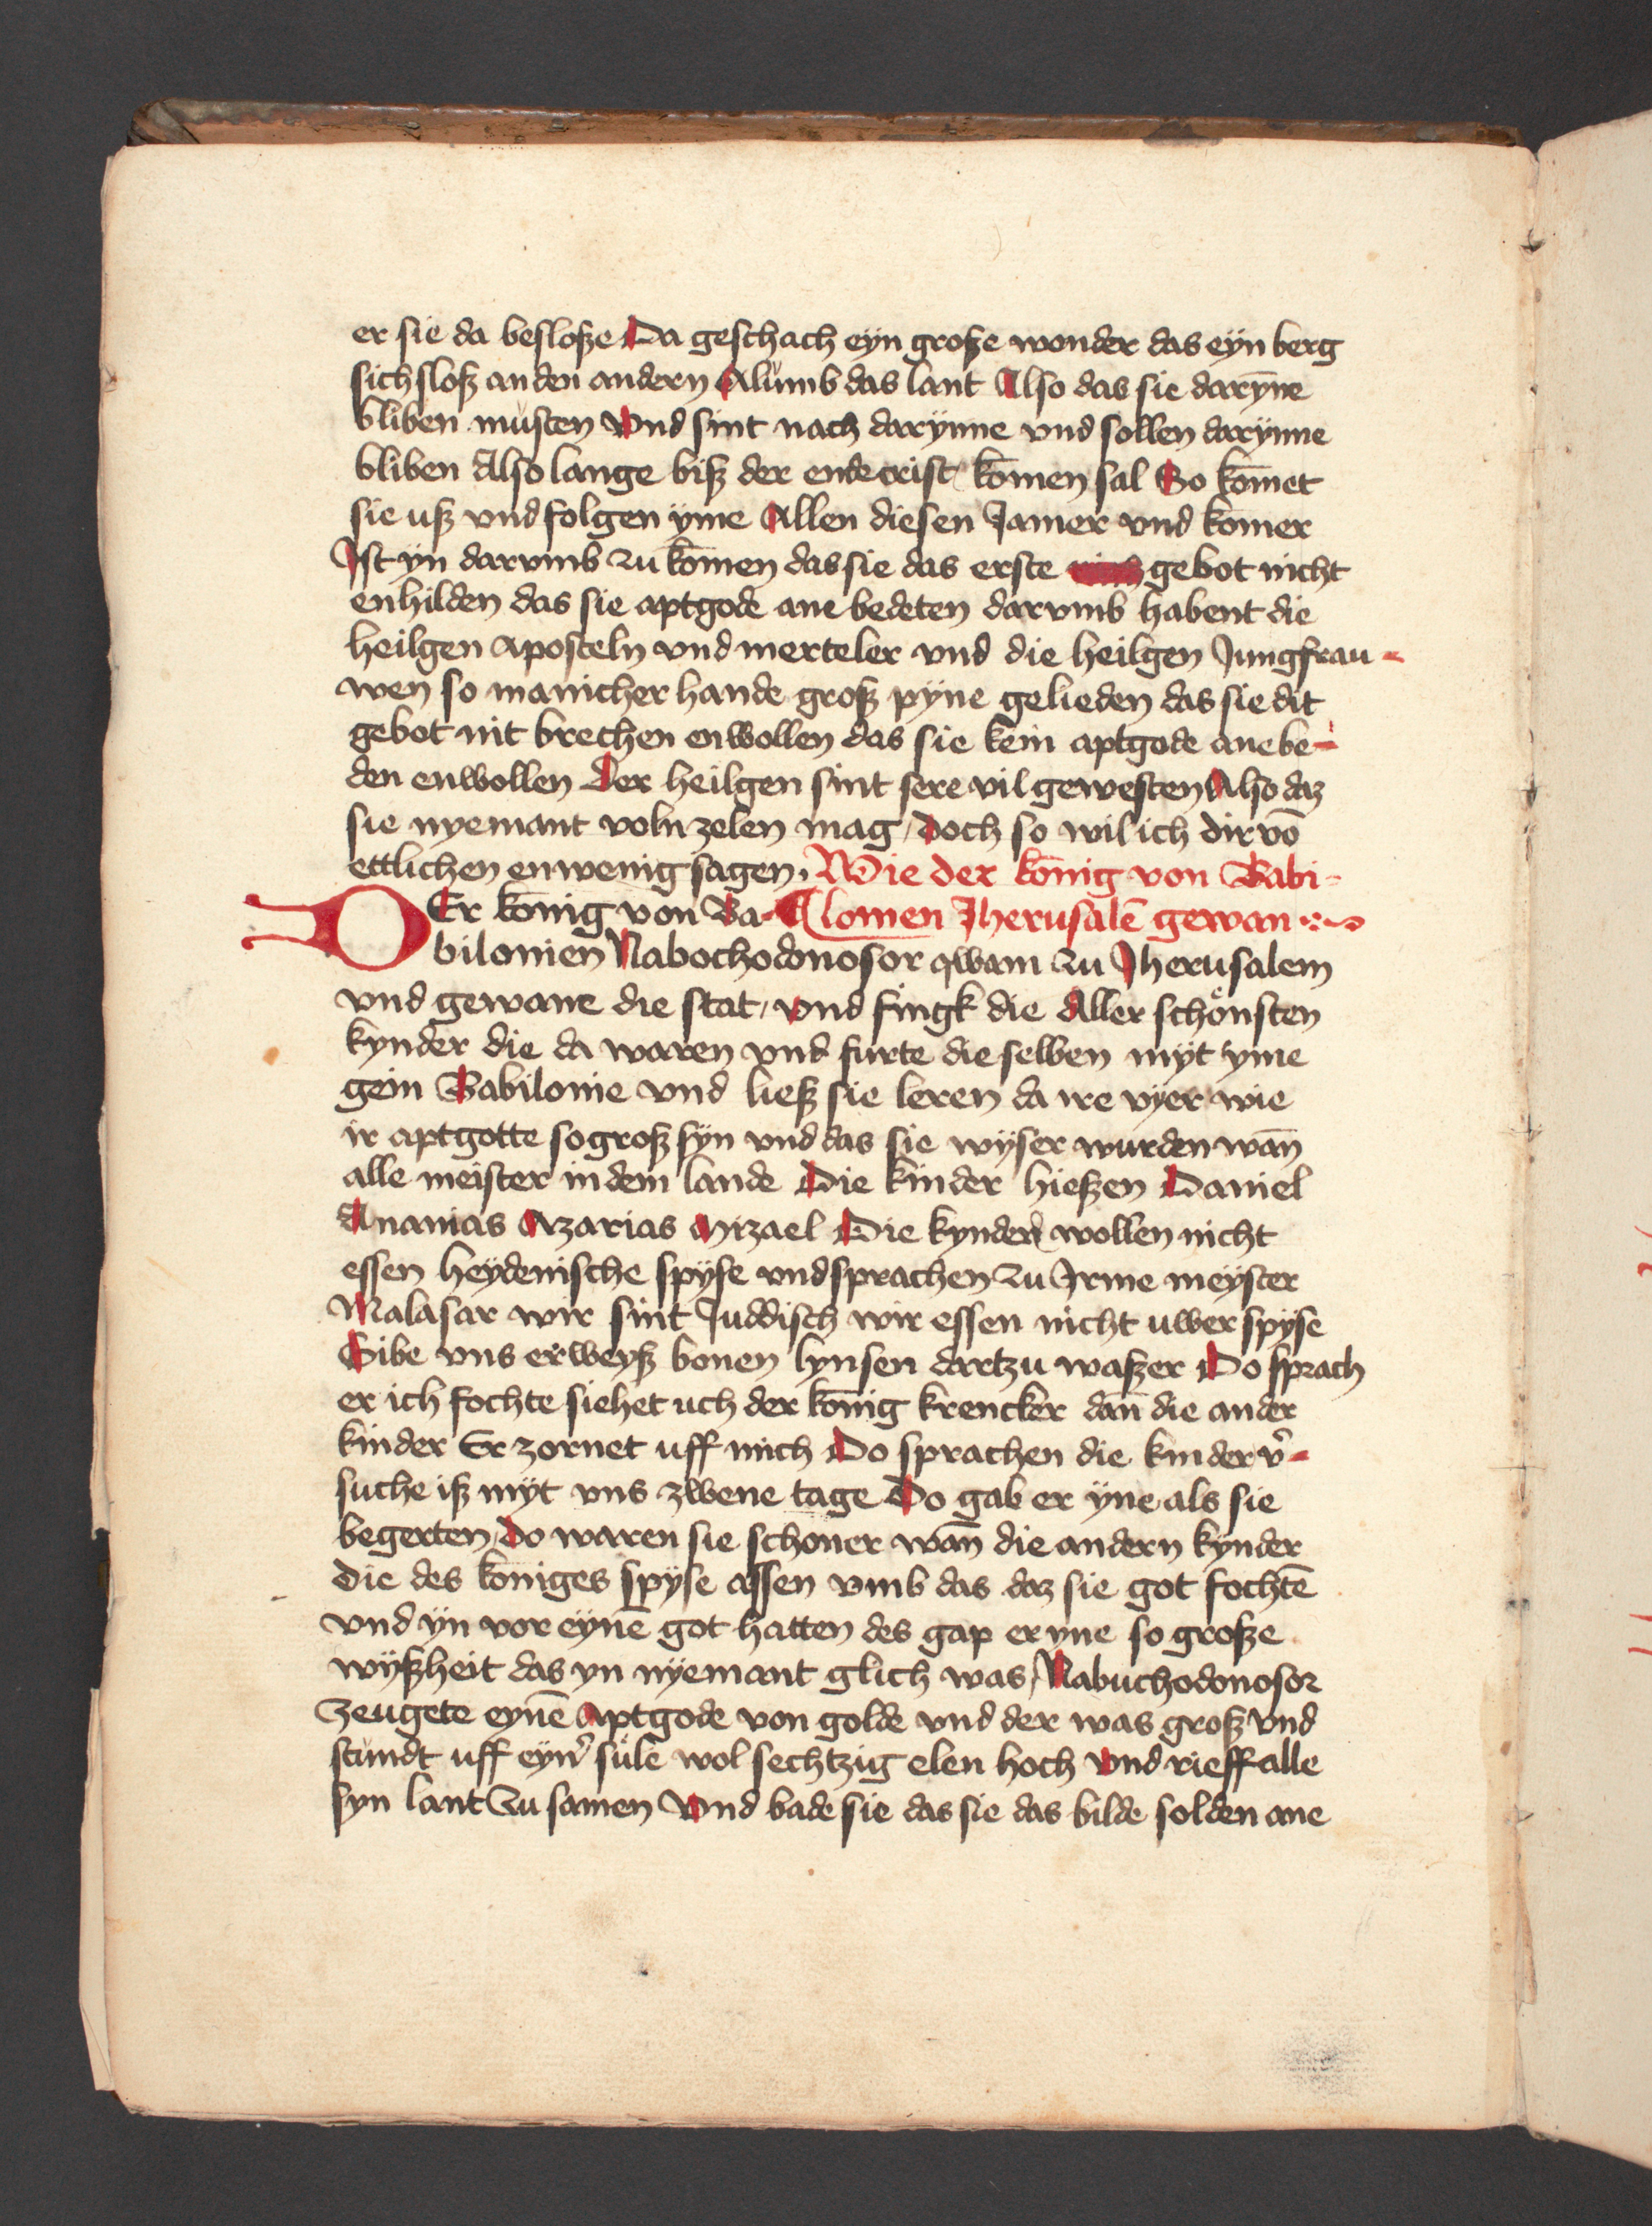 er sie da besloße Da geschach eyn große wonder das eyn berg
sich sloß an den andern Alumb das lant Also das sie daryn̄e
bliben musten Vnd sint nach darynne vnd sollen darynne
bliben Also lange biß der endecrist kōmen sal So kōmet
sie uß vnd folgen yme Allen diesen Jamer vnd komer
Ist yn darvmb zu kōmen das sie das erste gebot nicht
enhilden das sie aptgode ane bedeten darvmb habent die
heilgen Aposteln vnd merteler vnd die heilgen Jungfrau-
wen so manicher hande groß pyne gelieden das sie dit
gebot nit brechen enwollen das sie kein aptgode ane be-
den enwollen Der heilgen sint sere vil gewesten Also daz
sie nyemant voln zelen mag / doch so wil ich dir vō
ettlichen enwenig sagen. Wie der kōnig von Babi-
DEr kōnig von Ba- lonien Jherusalē gewan
bilonien Nabochodonosor qwam zu Jherusalem
vnd gewane die stat / vnd fingk die Aller schönsten
kynder die da waren vnd furte die selben myt yme
gein Babilonie vnd ließ sie leren da ire vyer wie
ir aptgotte so groß syn vnd das sie wyser wurden wan̄
alle meister in dem lande Die kinder hießen Daniel
Ananias Azarias Mizael Die kynder wollen nicht
essen heydenische spyse vnd sprachen zu Irme meyster
Malasar wir sint Juddisch wir essen nicht uwer spyse
Gibe vns erweyß bonen lynsen dartzu waßer Do sprach
er ich fochte siehet uch der kōnig krencker dan̄ die ander
kinder Er zornet uff mich Do sprachen die kinder v̉-
suche iß myt vns zwene tage Do gab er yne als sie
begerten Do waren sie schoner wan̄ die andern kynder
die des koniges spyse assen vmb das daz sie got fochtē
vnd yn vor eynē got hatten des gap er yne so große
wyßheit das yn nyemant glich was / Nabuchodonosor
zeugete eynē Aptgode von golde vnd der was groß vnd
stundt uff eyn̉ sule wol sechtzig elen hoch Vnd rieff alle
syn lant zu samen Vnd bade sie das sie das bilde solden ane